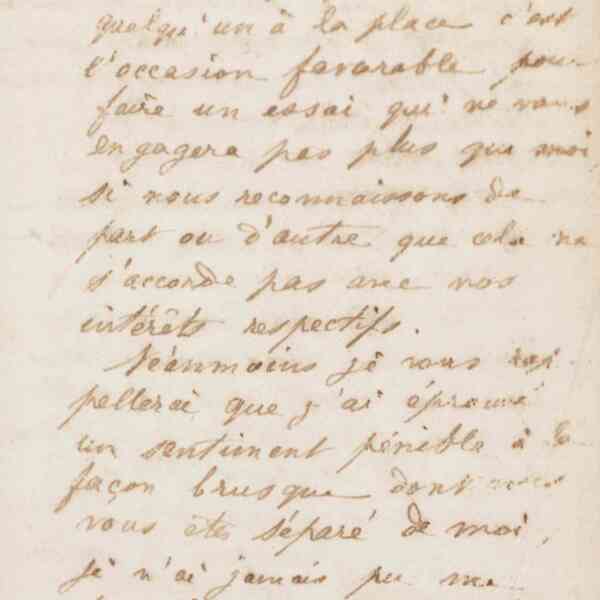 quelqu'un à la place c'est
l'occasion favorable pour
faire un essai qui ne vous
engagera pas plus que moi
si nous reconnaissons de
part ou d'autre que cela ne
s'accorde pas avec nos
intérêts respectifs.
Néanmoins je vous rap-
pellerai que j'ai éprouvé
un sentiment pénible à la
façon brusque dont vous
vous êtes séparé de moi,
je n'ai jamais pu me